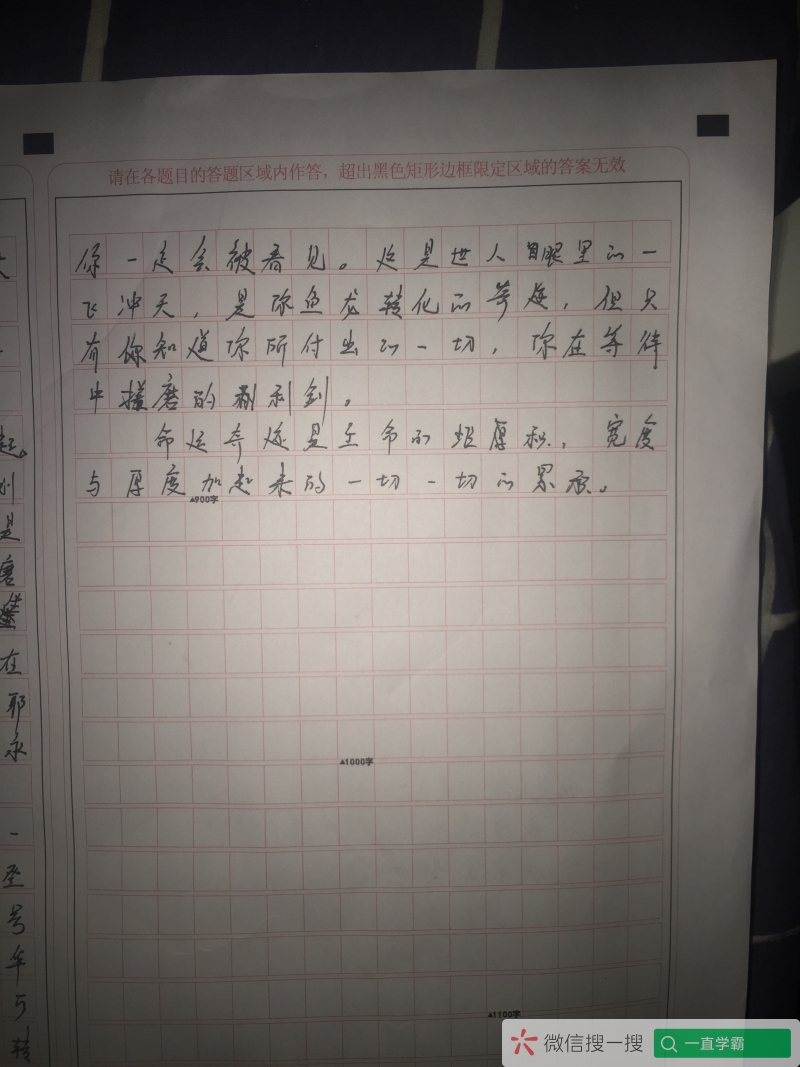 请在各题目的答题区域内作答，超出黑色矩形边框限定区域的答案无效
你一定会被看见。这是世人眼里的一
飞冲天，是你鱼龙转化的奇迹，但只
有你知道你所付出的一切，你在等待
中磨的利剑。
命运奇迹是生命的厚积，宽度
与厚度加起来的一切一切的累积。
▲900字
▲1000字
▲1100字
起。
是
磨
在
耶
永
一
圣
号
年
与
转
微信搜一搜
一直学霸